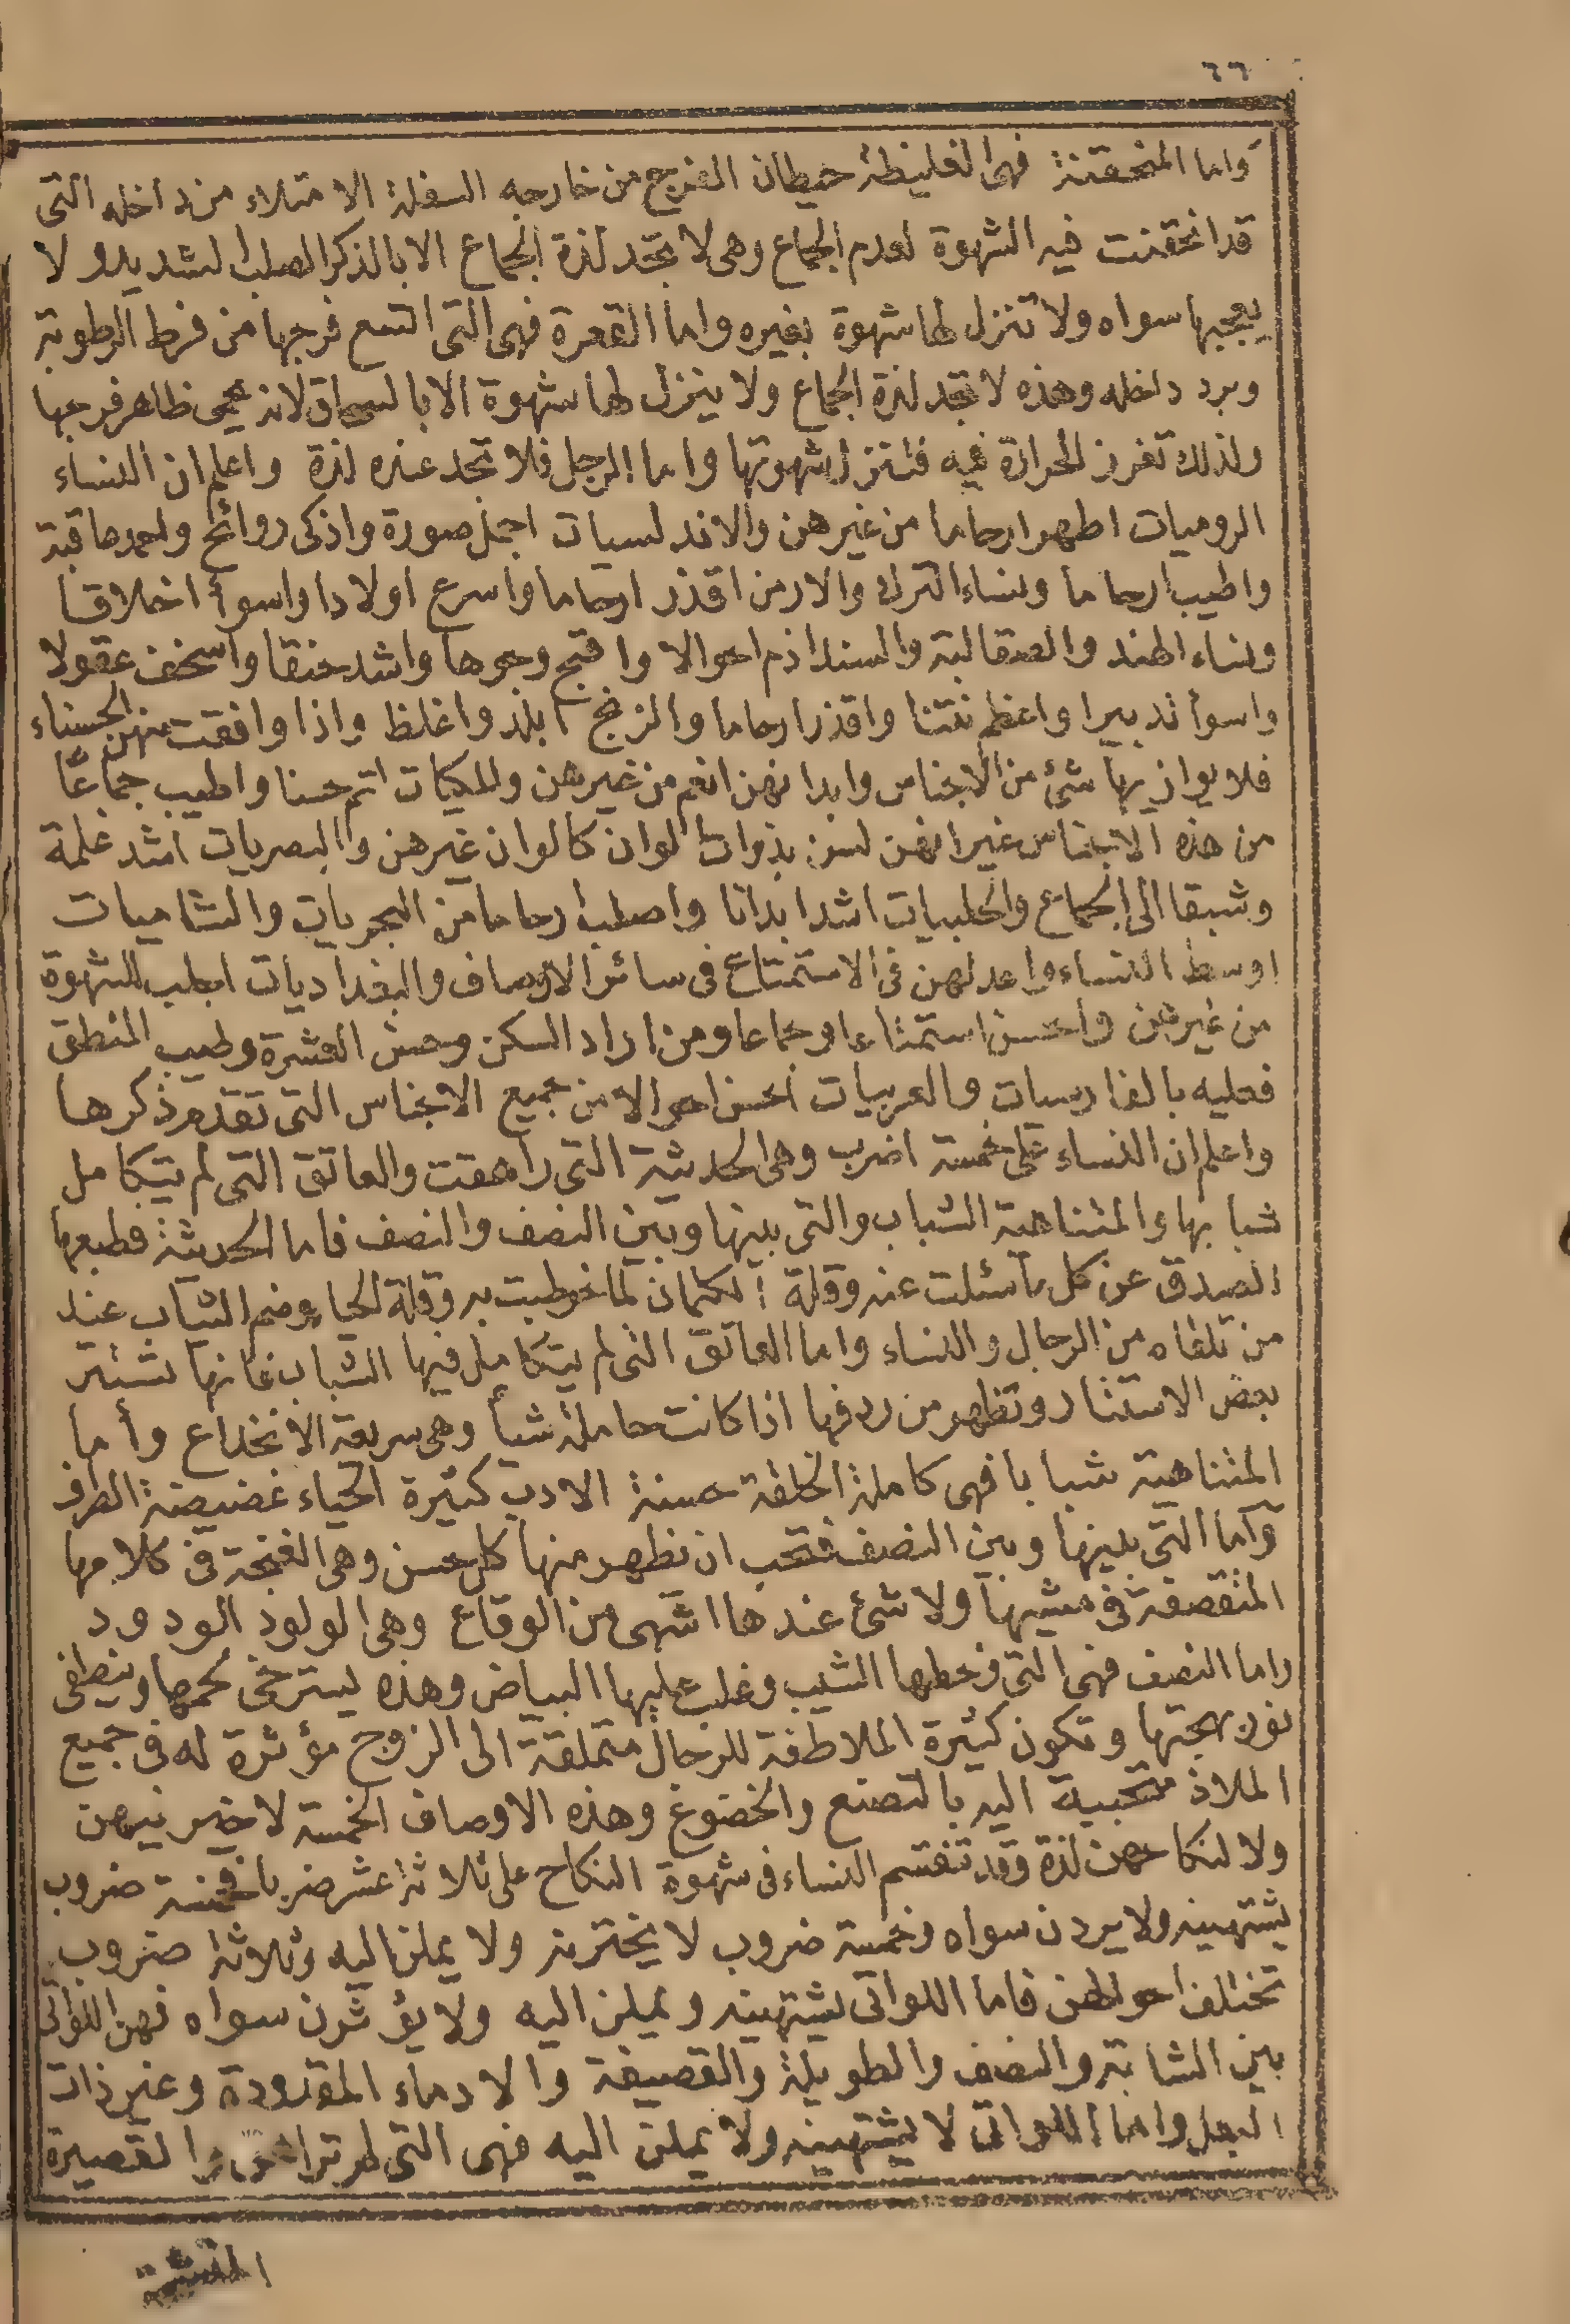 ٦٦
واما المنحقنة فهى الغليظة حيطان الفرج من خارجه السفلة الامتلاء من داخله التى
قد انحقنت فيه الشهوة لعدم الجماع وهى لا تجد لذة الجماع الا بالذكر الصلب الشديد ولا
يعجبها سواه ولا تنزل لها شهوة بغيره واما القعرة فهى التى اتسع فرجها من فرط الرطوبة
وبرد داخله وهذه لا تجد لذة الجماع ولا ينزل لها شهوة الا بالسحاق لانه يحمى ظاهر فرجها
ولذلك تغرز الحرارة فيه فتنزل شهوتها واما الرجل فلا تجد عنده لذة واعلم ان النساء
الروميات اطهر ارحاما من غيرهن والاندلسيات اجمل صورة واذكى روائح واحمد عاقبة
واطيب ارحاما ونساء الترك والارمن اقذر ارحاما واسرع اولادا واسوأ اخلاقا
ونساء الهند والصقالبة والسند اذم احوالا واقبح وجوها واشد حنقا واسخف عقولا
واسوأ تدبيرا واعظم نتنا واقذر ارحاما والزنج ابلد واغلظ واذا وافقت منهن الحسناء
فلا يوازيها شئ من الاجناس وابدانهن انعم من غيرهن والمكيات اتم حسنا واطيب جماعا
من هذه الاجناس غير انهن لسن بذوات الوان كالوان غيرهن والبصريات اشد غلمة
وشبقا الى الجماع والحلبيات اشد ابدانا واصلب ارحاما من البحريات والشاميات
اوسط النساء واعدلهن فى الاستمتاع فى سائر الاوصاف والبغداديات اجلب للشهوة
من غيرهن واحسن استمتاعا وجماعا ومن اراد السكن وحسن العشرة وطيب المنطق
فعليه بالفارسيات والعربيات احسن احوالا من جميع الاجناس التى تقدم ذكرها
واعلم ان النساء على خمسة اضرب وهى الحديثة التى راهقت والعاتق التى لم يتكامل
شبابها والمتناهية الشباب والتى بينها وبين النصف والنصف فاما الحديثة فطبعها
الصدق عن كل ما سئلت عنه وقلة الكتمان لما خوطبت به وقلة الحياء وضم الثياب عند
من تلقاه من الرجال والنساء واما العاتق التى لم يتكامل فيها الشباب فانها تستتر
بعض الاستتار وتظهر من ردفها اذا كانت حاملة شيأ وهى سريعة الانخداع وأما
المتناهية شبابا فهى كاملة الخلقة حسنة الادب كثيرة الحياء غضيضة الطرف
وأما التى بينها وبين النصف فتحب ان تظهر منها كل حسن وهى الغنجة فى كلامها
المتقصفة فى مشيها ولا شئ عندها اشهى من الوقاع وهى الولود الودود
واما النصف فهى التى وخطها الشيب وغلب عليها البياض وهذه يسترخى لحمها وينطفى
نور بهجتها وتكون كثيرة الملاطفة للرجال متملقة الى الزوج مؤثرة له فى جميع
الملاذ متحببة اليه بالتصنع والخضوع وهذه الاوصاف الخمسة لا خير فيهن
ولا لنكاحهن لذة وقد تنقسم النساء فى شهوة النكاح على ثلاثة عشر ضربا فخمسة ضروب
يشتهينه ولا يردن سواه وخمسة ضروب لا يخترنه ولا يملن اليه وثلاثة ضروب
تختلف احوالهن فاما اللواتى يشتهينه ويملن اليه ولا يؤثرن سواه فهن اللواتى
بين الشابة والنصف والطويلة والقصيفة والادماء المقدودة وغير ذات
البعل واما اللواتى لا يشتهينه ولا يملن اليه فهى التى لم تراهق والقصيرة